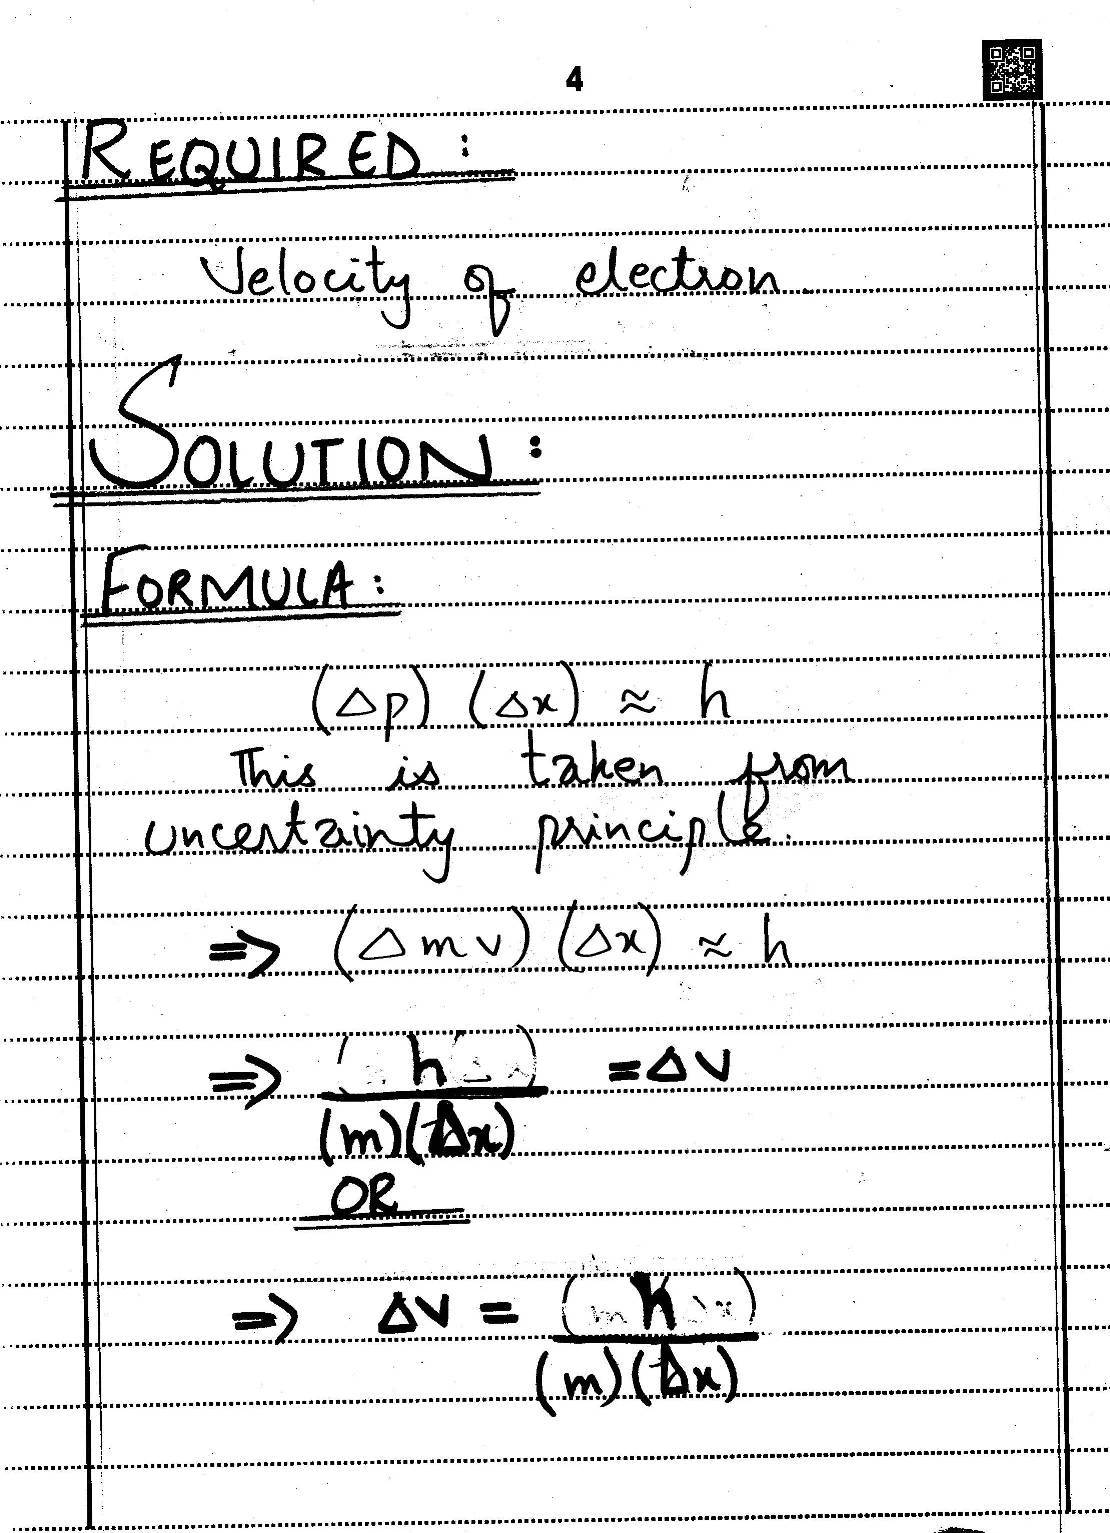 4
REQUIRED :
Velocity of electron.
SOLUTION :
FORMULA :
(Δp) (Δx) ≈ h
This is taken from
uncertainty principle.
=> (Δ m v) (Δx) ≈ h
=> h / (m)(Δx) = Δv
OR
=> Δv = h / (m)(Δx)